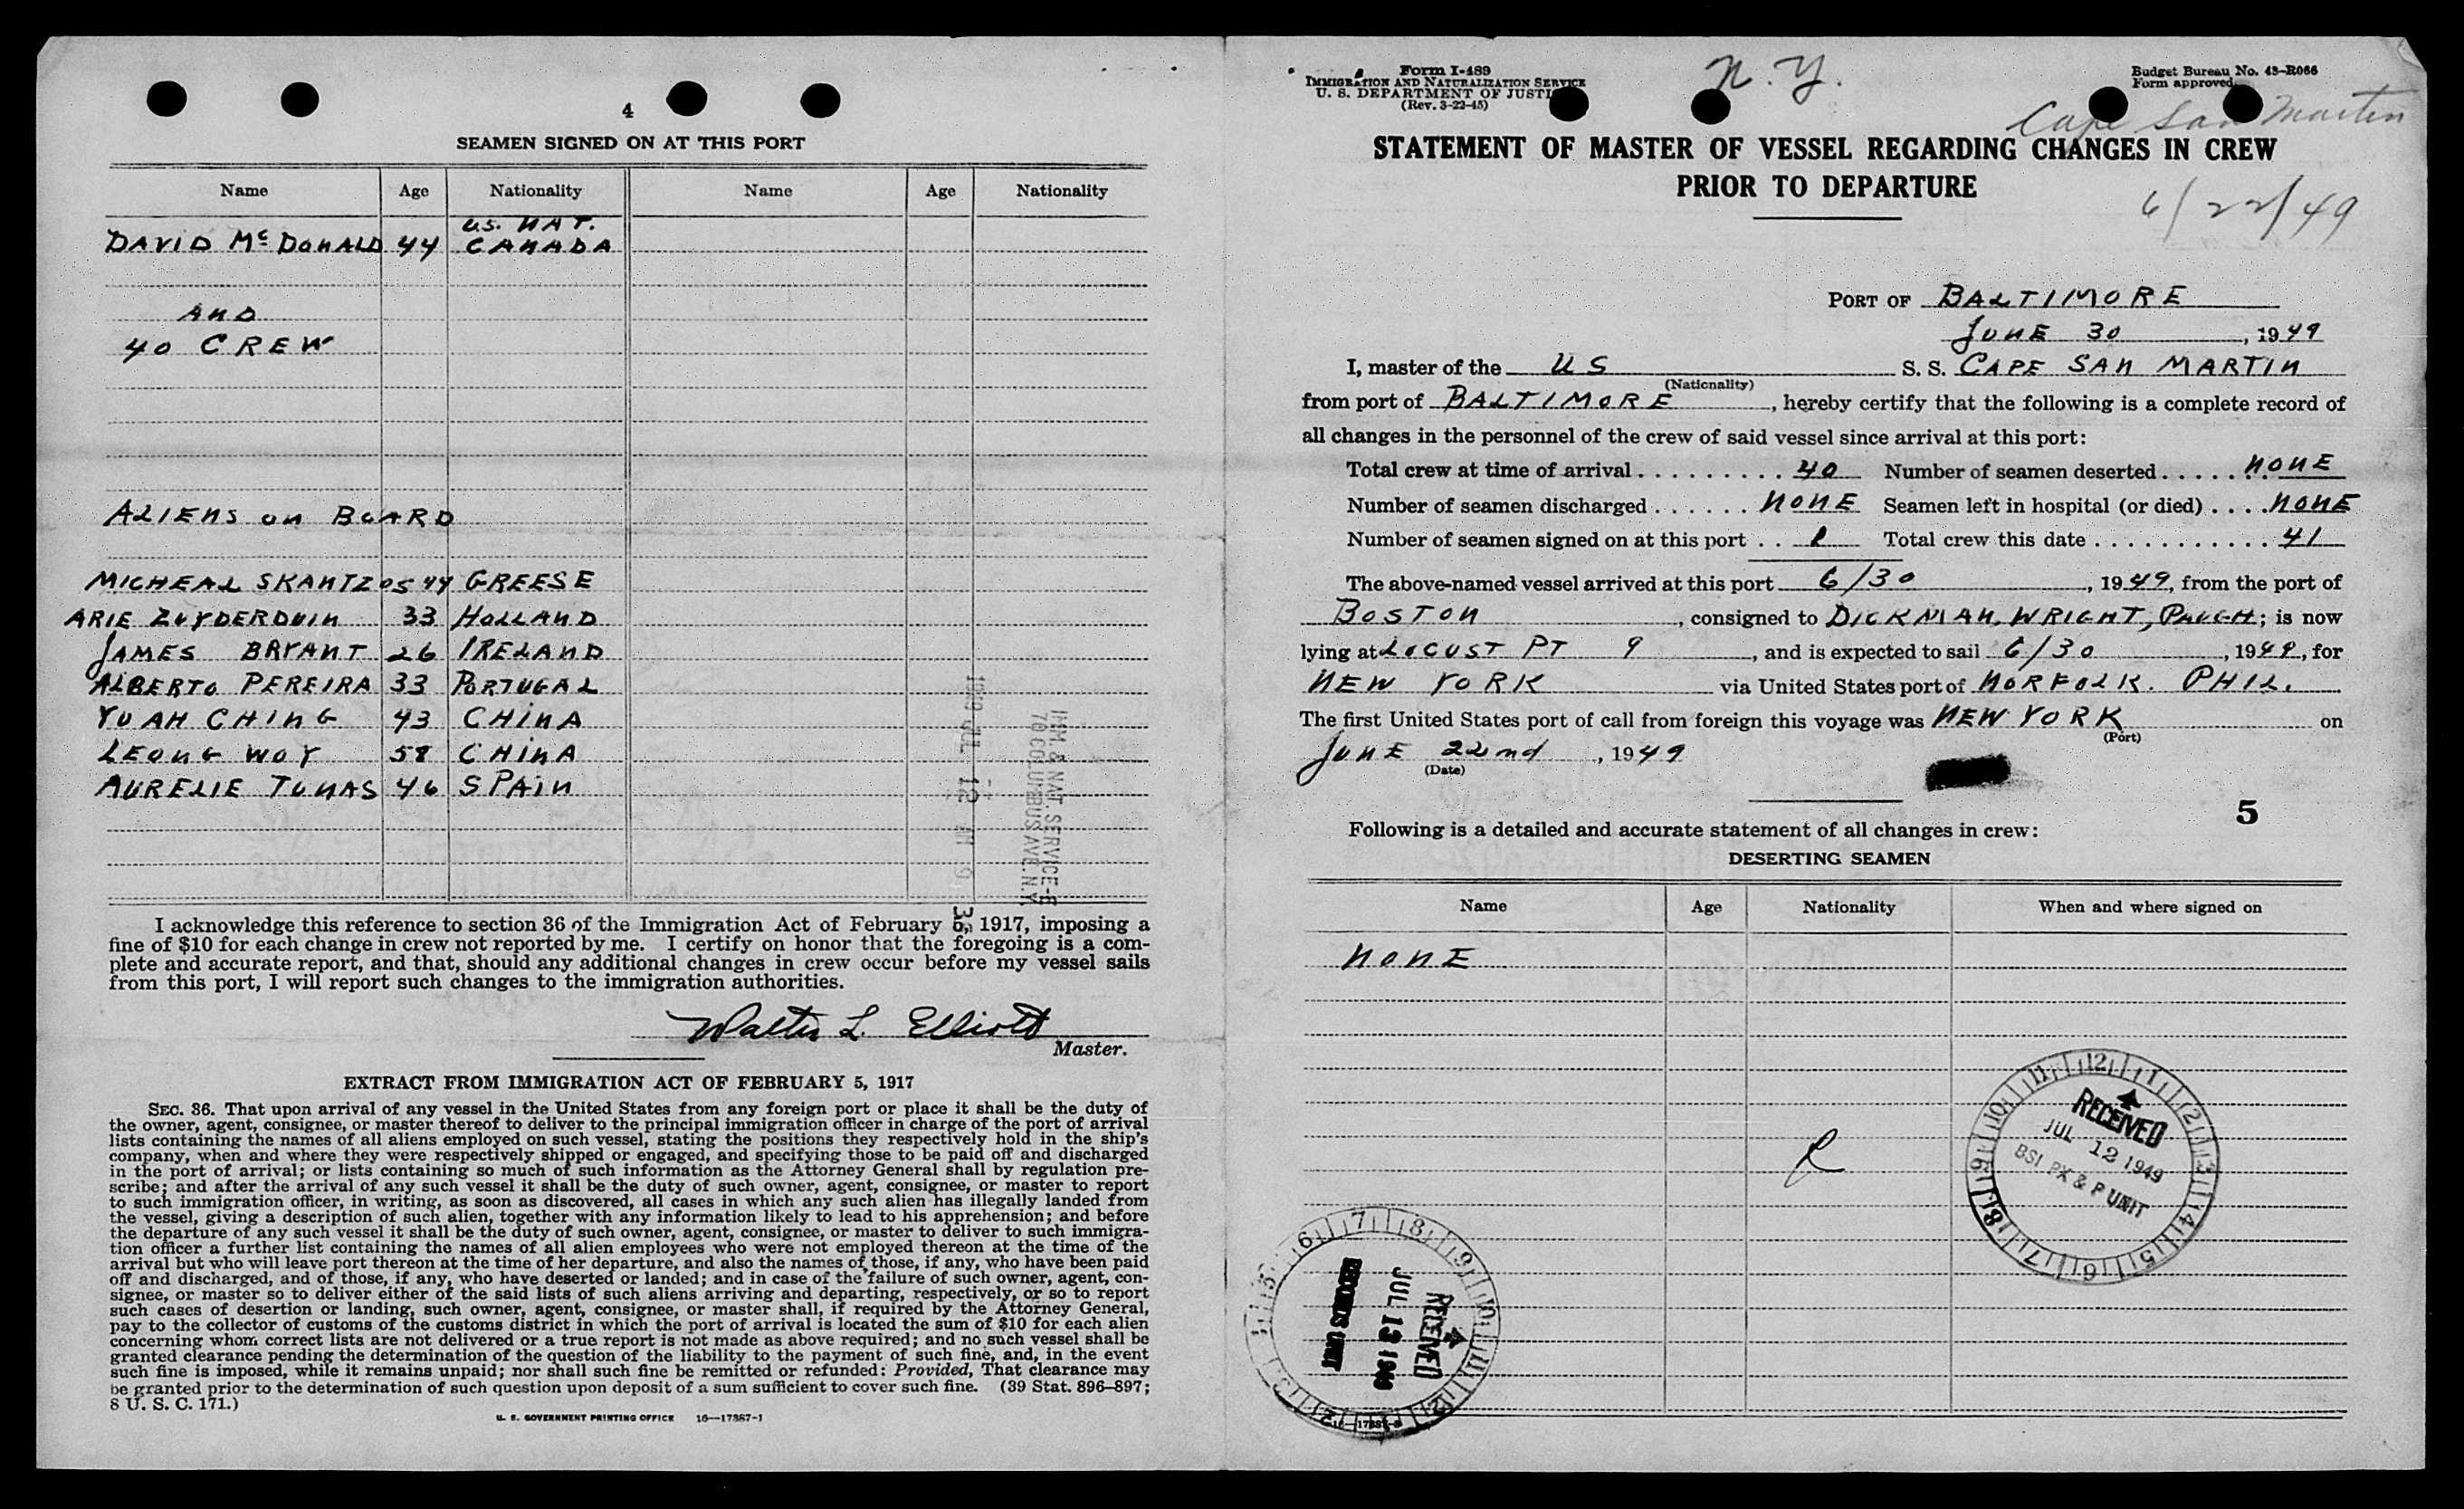 4
SEAMEN SIGNED ON AT THIS PORT
Name Age Nationality Name Age Nationality
U.S. NAT.
DAVID McDONALD 44 CANADA
AND
40 CREW
ALIENS ON BOARD
MICHEAL SKANTZOS 44 GREESE
ARIE ZUYDERDUIN 33 HOLLAND
JAMES BRYANT 26 IRELAND
ALBERTO PEREIRA 33 PORTUGAL
YUAH CHING 43 CHINA
LEONG WOY 58 CHINA
AURELIE TUNAS 46 SPAIN
IMM. & NAT. SERVICE-E
70 COLUMBUS AVE. N.Y.
JUL 12 AM 9
I acknowledge this reference to section 36 of the Immigration Act of February 5, 1917, imposing a
fine of $10 for each change in crew not reported by me. I certify on honor that the foregoing is a com-
plete and accurate report, and that, should any additional changes in crew occur before my vessel sails
from this port, I will report such changes to the immigration authorities.
Walter L. Elliott
Master.
EXTRACT FROM IMMIGRATION ACT OF FEBRUARY 5, 1917
SEC. 36. That upon arrival of any vessel in the United States from any foreign port or place it shall be the duty of
the owner, agent, consignee, or master thereof to deliver to the principal immigration officer in charge of the port of arrival
lists containing the names of all aliens employed on such vessel, stating the positions they respectively hold in the ship's
company, when and where they were respectively shipped or engaged, and specifying those to be paid off and discharged
in the port of arrival; or lists containing so much of such information as the Attorney General shall by regulation pre-
scribe; and after the arrival of any such vessel it shall be the duty of such owner, agent, consignee, or master to report
to such immigration officer, in writing, as soon as discovered, all cases in which any such alien has illegally landed from
the vessel, giving a description of such alien, together with any information likely to lead to his apprehension; and before
the departure of any such vessel it shall be the duty of such owner, agent, consignee, or master to deliver to such immigra-
tion officer a further list containing the names of all alien employees who were not employed thereon at the time of the
arrival but who will leave port thereon at the time of her departure, and also the names of those, if any, who have been paid
off and discharged, and of those, if any, who have deserted or landed; and in case of the failure of such owner, agent, con-
signee, or master so to deliver either of the said lists of such aliens arriving and departing, respectively, or so to report
such cases of desertion or landing, such owner, agent, consignee, or master shall, if required by the Attorney General,
pay to the collector of customs of the customs district in which the port of arrival is located the sum of $10 for each alien
concerning whom correct lists are not delivered or a true report is not made as above required; and no such vessel shall be
granted clearance pending the determination of the question of the liability to the payment of such fine, and, in the event
such fine is imposed, while it remains unpaid; nor shall such fine be remitted or refunded: Provided, That clearance may
be granted prior to the determination of such question upon deposit of a sum sufficient to cover such fine. (39 Stat. 896–897;
8 U. S. C. 171.)
U. S. GOVERNMENT PRINTING OFFICE 16—17387-1
Form I-489
IMMIGRATION AND NATURALIZATION SERVICE
U. S. DEPARTMENT OF JUSTI
(Rev. 3-22-45)
N. Y.
Budget Bureau No. 43–R066
Form approved.
Cape San Martin
STATEMENT OF MASTER OF VESSEL REGARDING CHANGES IN CREW
PRIOR TO DEPARTURE
6/22/49
PORT OF BALTIMORE
JUNE 30, 1949
I, master of the US S. S. CAPE SAN MARTIN
(Nationality)
from port of BALTIMORE, hereby certify that the following is a complete record of
all changes in the personnel of the crew of said vessel since arrival at this port:
Total crew at time of arrival 40 Number of seamen deserted NONE
Number of seamen discharged NONE Seamen left in hospital (or died) NONE
Number of seamen signed on at this port 1 Total crew this date 41
The above-named vessel arrived at this port 6/30, 1949, from the port of
BOSTON, consigned to DICKMAN, WRIGHT, PAUGH; is now
lying at LOCUST PT 9, and is expected to sail 6/30, 1949, for
NEW YORK via United States port of NORFOLK. PHIL.
The first United States port of call from foreign this voyage was NEW YORK on
(Port)
JUNE 22nd, 1949
(Date)
5
Following is a detailed and accurate statement of all changes in crew:
DESERTING SEAMEN
Name Age Nationality When and where signed on
NONE
R
12 1 2 3 4 5 6 7 8 9 10 11
RECEIVED
JUL 12 1949
BSI PX & P UNIT
RECEIVED
JUL 13 1949
RECORDS UNIT